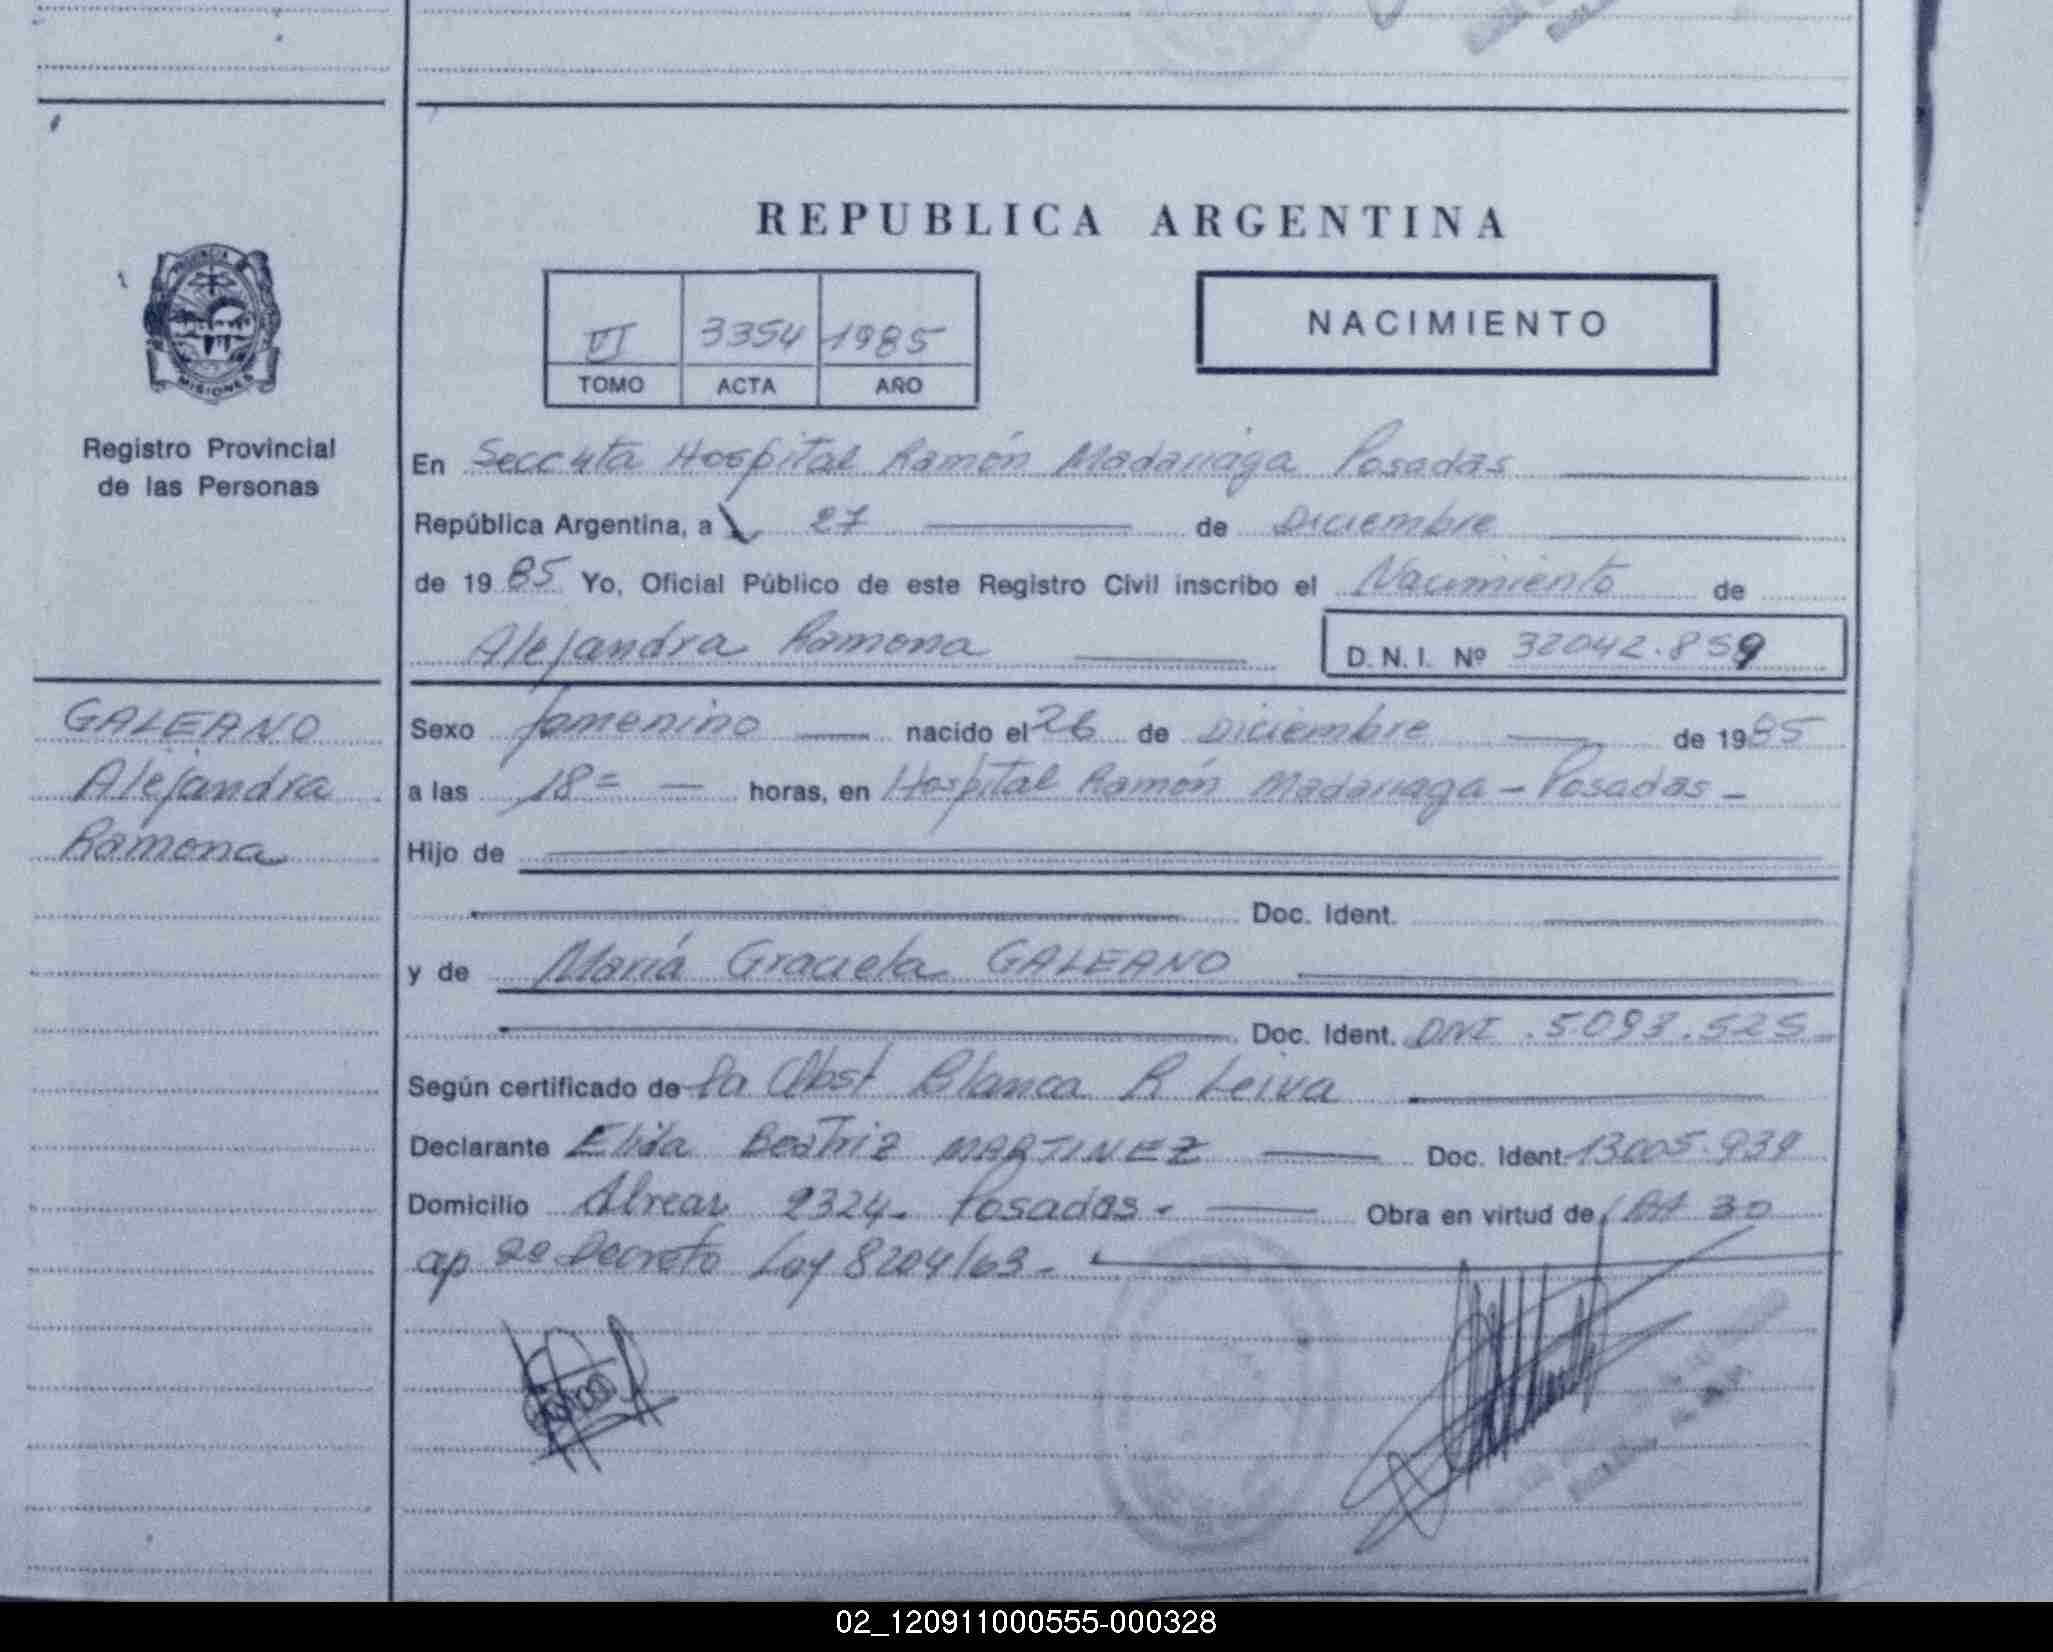 REPUBLICA ARGENTINA
PROVINCIA DE
MISIONES
Registro Provincial
de las Personas
VI 3354 1985
TOMO ACTA AÑO
NACIMIENTO
En Secc 4ta Hospital Ramón Madariaga Posadas
República Argentina, a 27 de Diciembre
de 1985 Yo, Oficial Público de este Registro Civil inscribo el Nacimiento de
Alejandra Ramona D.N.I. Nº 32042.859
GALEANO
Alejandra
Ramona
Sexo femenino nacido el 26 de Diciembre de 1985
a las 18= horas, en Hospital Ramón Madariaga - Posadas -
Hijo de
Doc. Ident.
y de María Graciela GALEANO
Doc. Ident. DNI. 5093.525-
Según certificado de la Obst Blanca R Leiva
Declarante Elida Beatriz MARTINEZ Doc. Ident. 13005.939
Domicilio Alvear 2324- Posadas- Obra en virtud de Art 30
ap 2º Decreto Ley 8204/63-
02_120911000555-000328